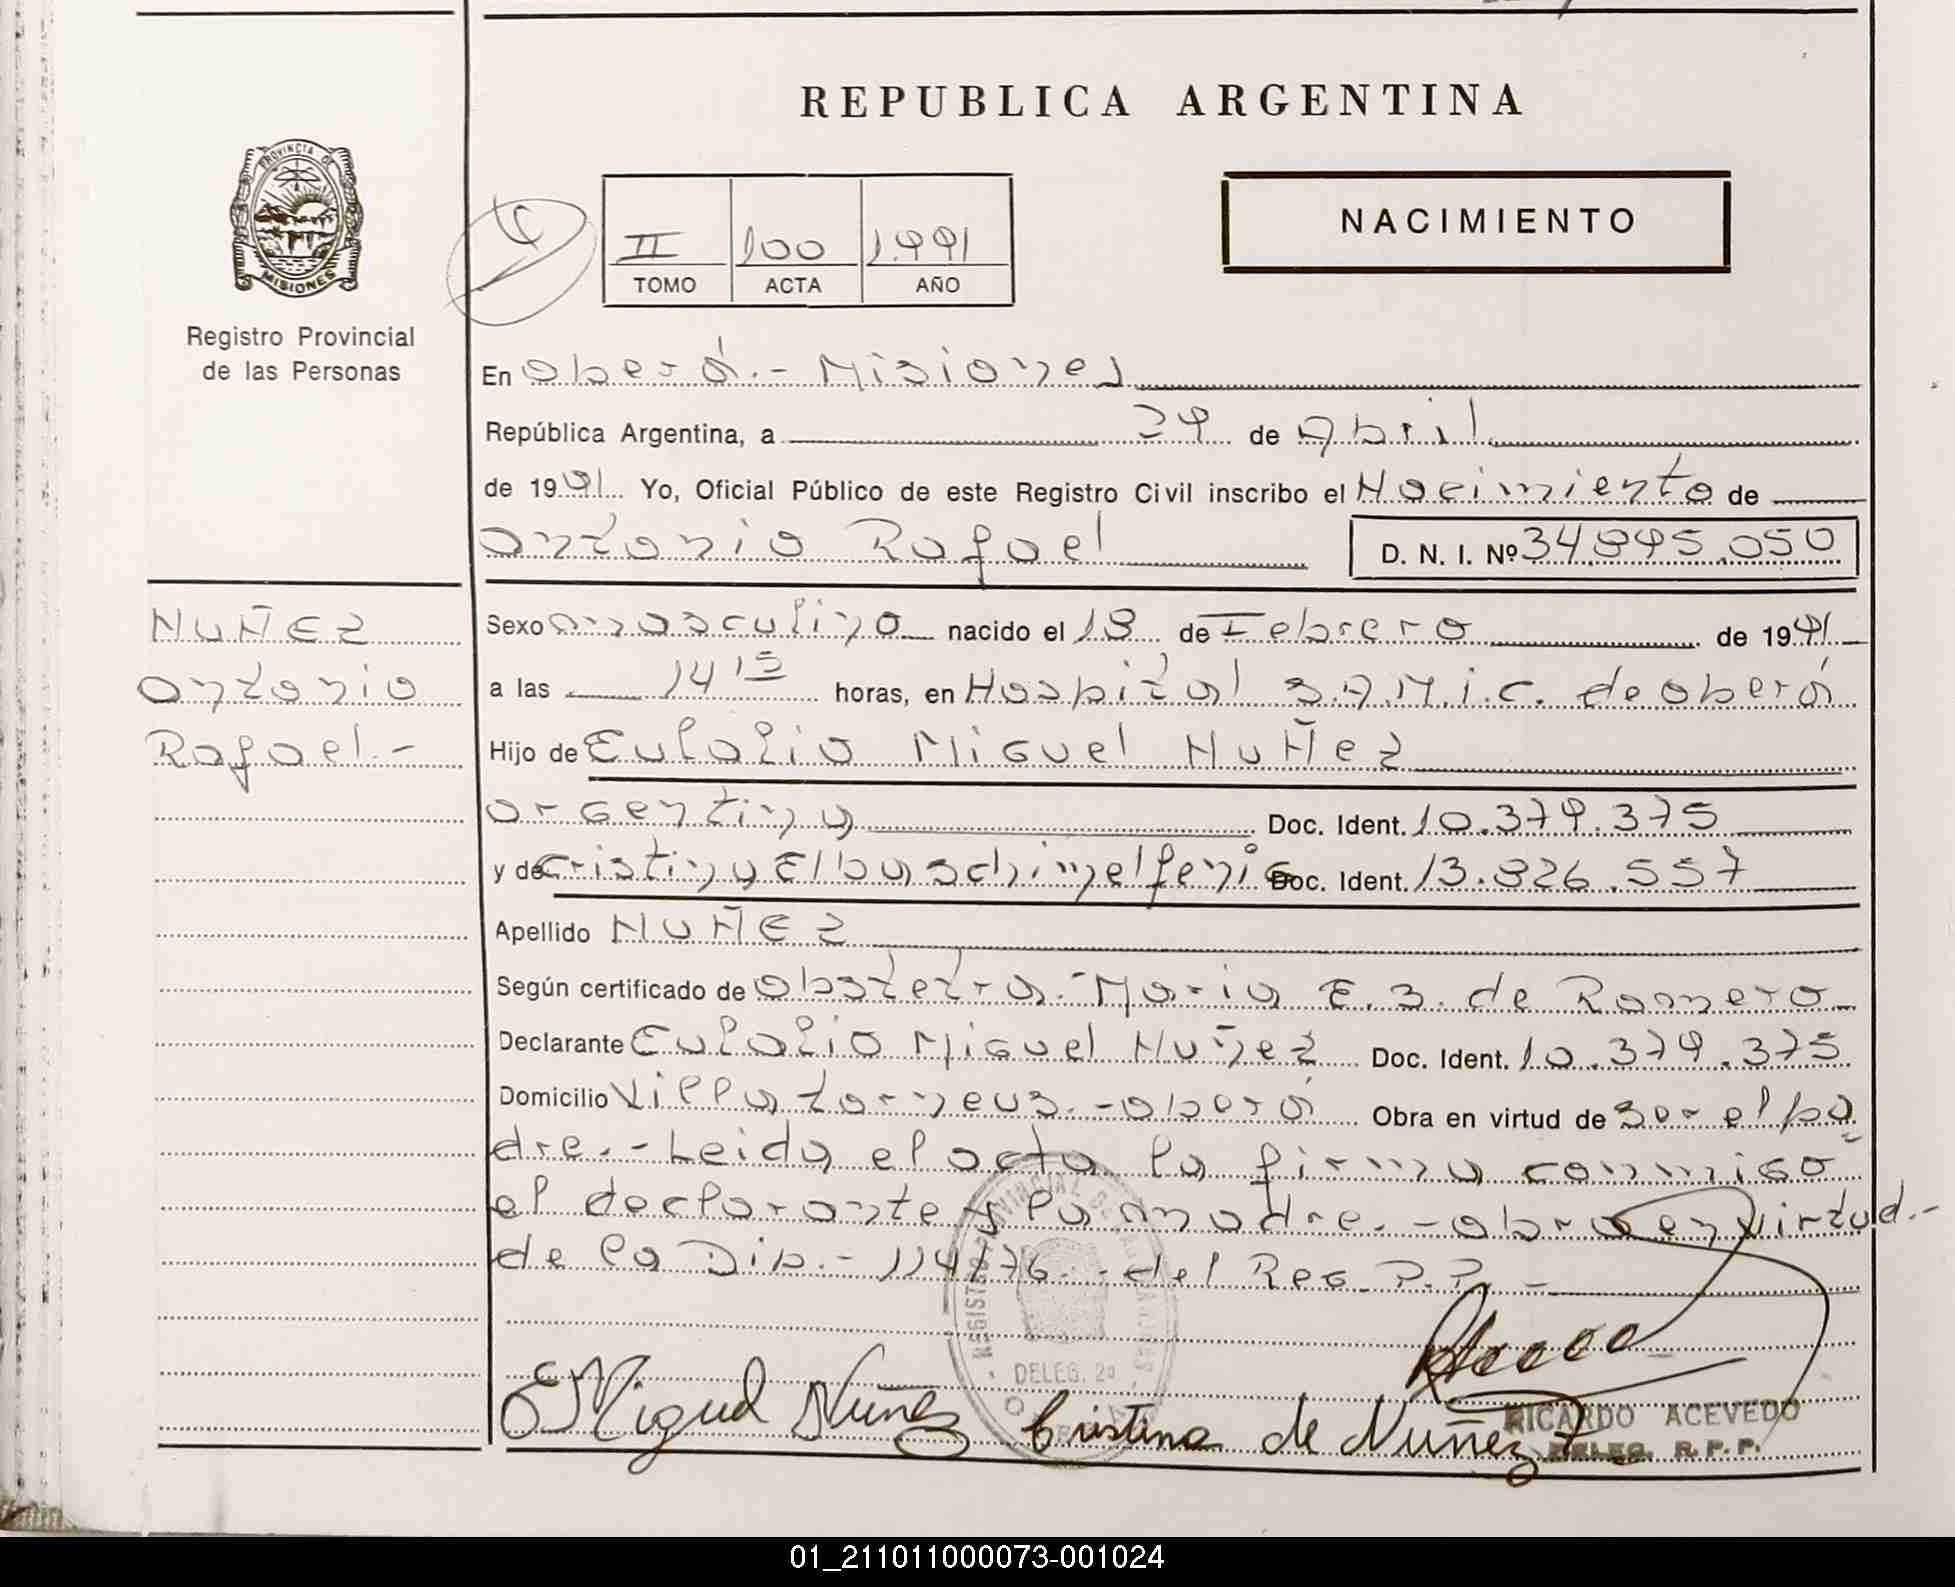 REPUBLICA ARGENTINA
PROVINCIA DE
MISIONES
Registro Provincial
de las Personas
II 100 1.991
TOMO ACTA AÑO
NACIMIENTO
En Oberá.- Misiones
República Argentina, a 24 de Abril
de 1991 Yo, Oficial Público de este Registro Civil inscribo el Nacimiento de
Antonio Rafael D. N. I. Nº 34.895.050
NUÑEZ
Antonio
Rafael.-
Sexo masculino nacido el 18 de Febrero de 1991
a las 14 15 horas, en Hospital S.A.M.i.C. de Oberá
Hijo de Eulalio Miguel NUÑEZ
argentina Doc. Ident. 10.379.375
y de Cristina Elba Schimelfenig Doc. Ident. 13.826.557
Apellido NUÑEZ
Según certificado de Obstetra.- Maria E. S. de Romero
Declarante Eulalio Miguel Nuñez Doc. Ident. 10.379.375
Domicilio Villa torneus.- Oberá Obra en virtud de Ser el pa
dre.- Leida el acta la firma conmigo
el declarante y la madre.- obra en virtud.-
de la Dip.- 114/76.- del Reg. P.P.-
REGISTRO PROVINCIAL DE LAS PERSONAS
DELEG. 2a
OBERA
E Miguel Nuñez Cristina de Nuñez
RICARDO ACEVEDO
DELEG. R. P. P.
01_211011000073-001024